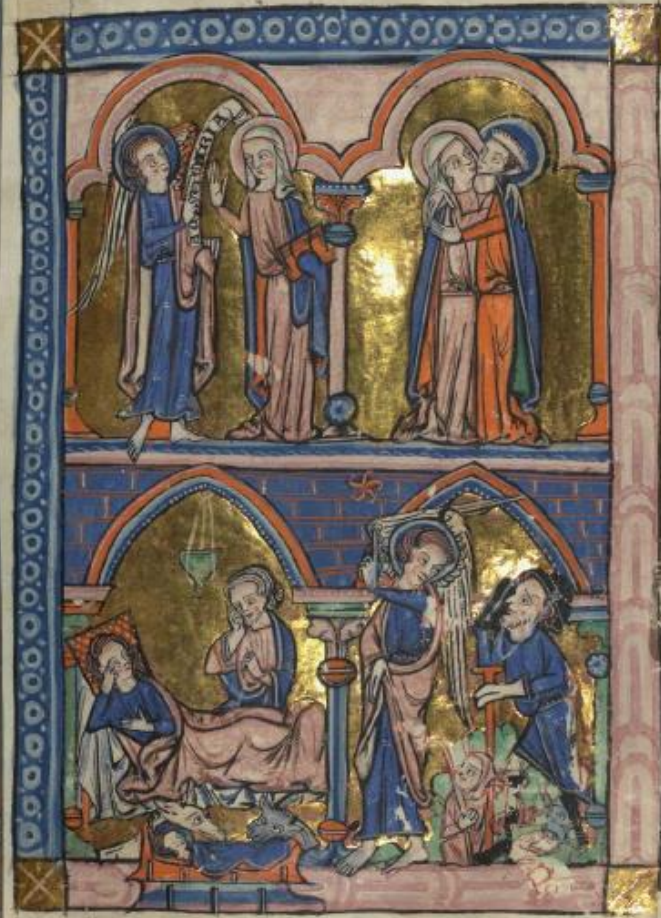 AUE MARIA